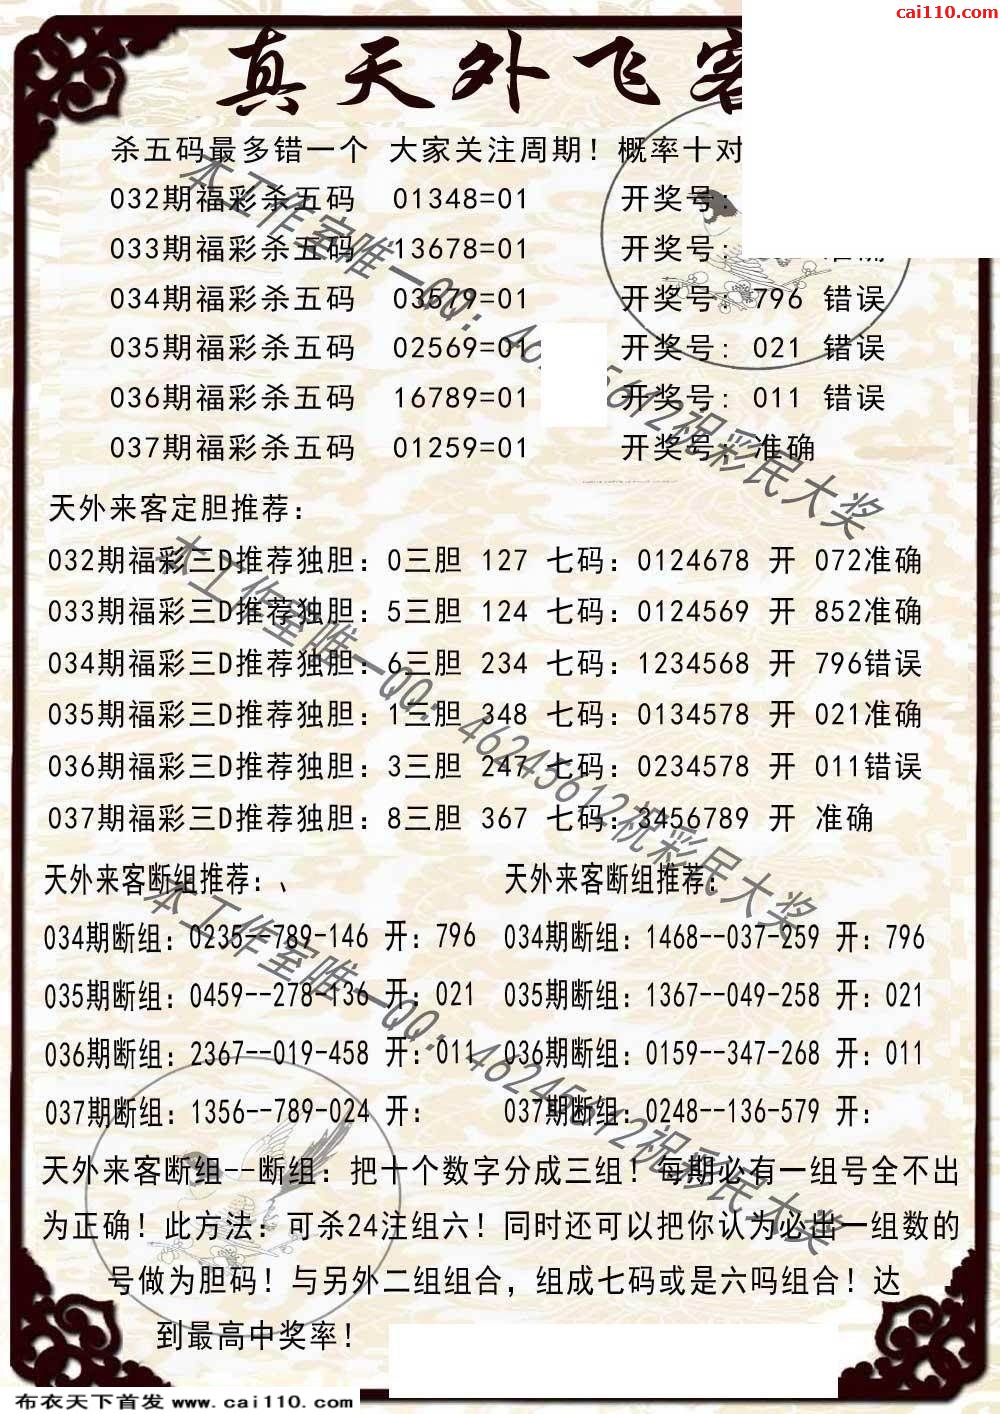 cai110.com
真天外飞客
杀五码最多错一个 大家关注周期！概率十对
032期福彩杀五码 01348=01 开奖号:
033期福彩杀五码 13678=01 开奖号: 准确
034期福彩杀五码 03579=01 开奖号: 796 错误
035期福彩杀五码 02569=01 开奖号: 021 错误
036期福彩杀五码 16789=01 开奖号: 011 错误
037期福彩杀五码 01259=01 开奖号: 准确
天外来客定胆推荐:
032期福彩三D推荐独胆: 0三胆 127 七码: 0124678 开 072准确
033期福彩三D推荐独胆: 5三胆 124 七码: 0124569 开 852准确
034期福彩三D推荐独胆: 6三胆 234 七码: 1234568 开 796错误
035期福彩三D推荐独胆: 1三胆 348 七码: 0134578 开 021准确
036期福彩三D推荐独胆: 3三胆 247 七码: 0234578 开 011错误
037期福彩三D推荐独胆: 8三胆 367 七码: 3456789 开 准确
天外来客断组推荐:、 天外来客断组推荐:
034期断组: 0235--789-146 开: 796 034期断组: 1468--037-259 开: 796
035期断组: 0459--278-136 开: 021 035期断组: 1367--049-258 开: 021
036期断组: 2367--019-458 开: 011 036期断组: 0159--347-268 开: 011
037期断组: 1356--789-024 开: 037期断组: 0248--136-579 开:
天外来客断组--断组: 把十个数字分成三组！每期必有一组号全不出
为正确！此方法: 可杀24注组六！同时还可以把你认为必出一组数的
号做为胆码！与另外二组组合，组成七码或是六吗组合！达
到最高中奖率！
本工作室唯一QQ: 46245612祝彩民大奖
本工作室唯一QQ: 46245612祝彩民大奖
本工作室唯一QQ: 46245612祝彩民大奖
布衣天下首发 www.cai110.com